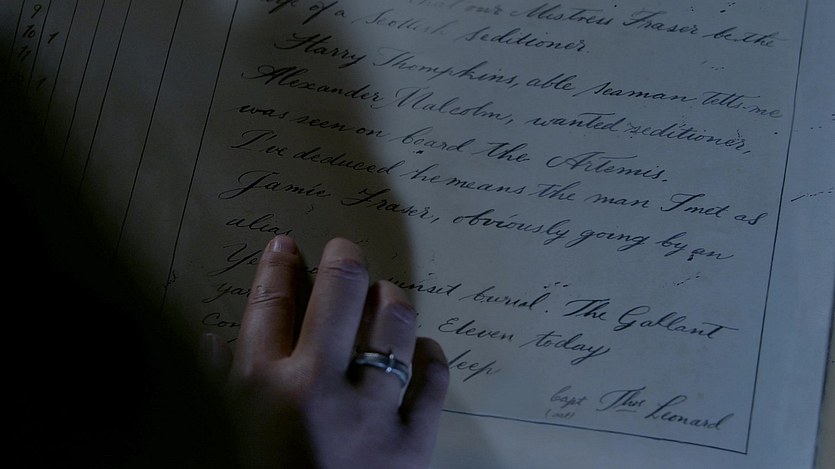 9
10 1
11
1
that our Mistress Fraser be the
wife of a Scottish Seditioner.
Harry Thompkins, able seaman tells me
Alexander Malcolm, wanted seditioner,
was seen on board the Artemis.
I've deduced he means the man I met as
Jamie Fraser, obviously going by an
alias
sunset burial. The Gallant
Eleven today
deep
Capt Thos Leonard